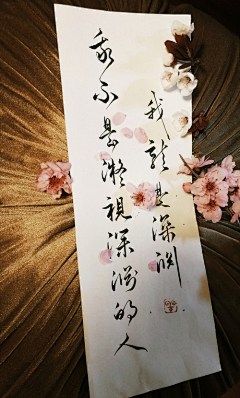 我不是凝視深渊的人
我就是深渊